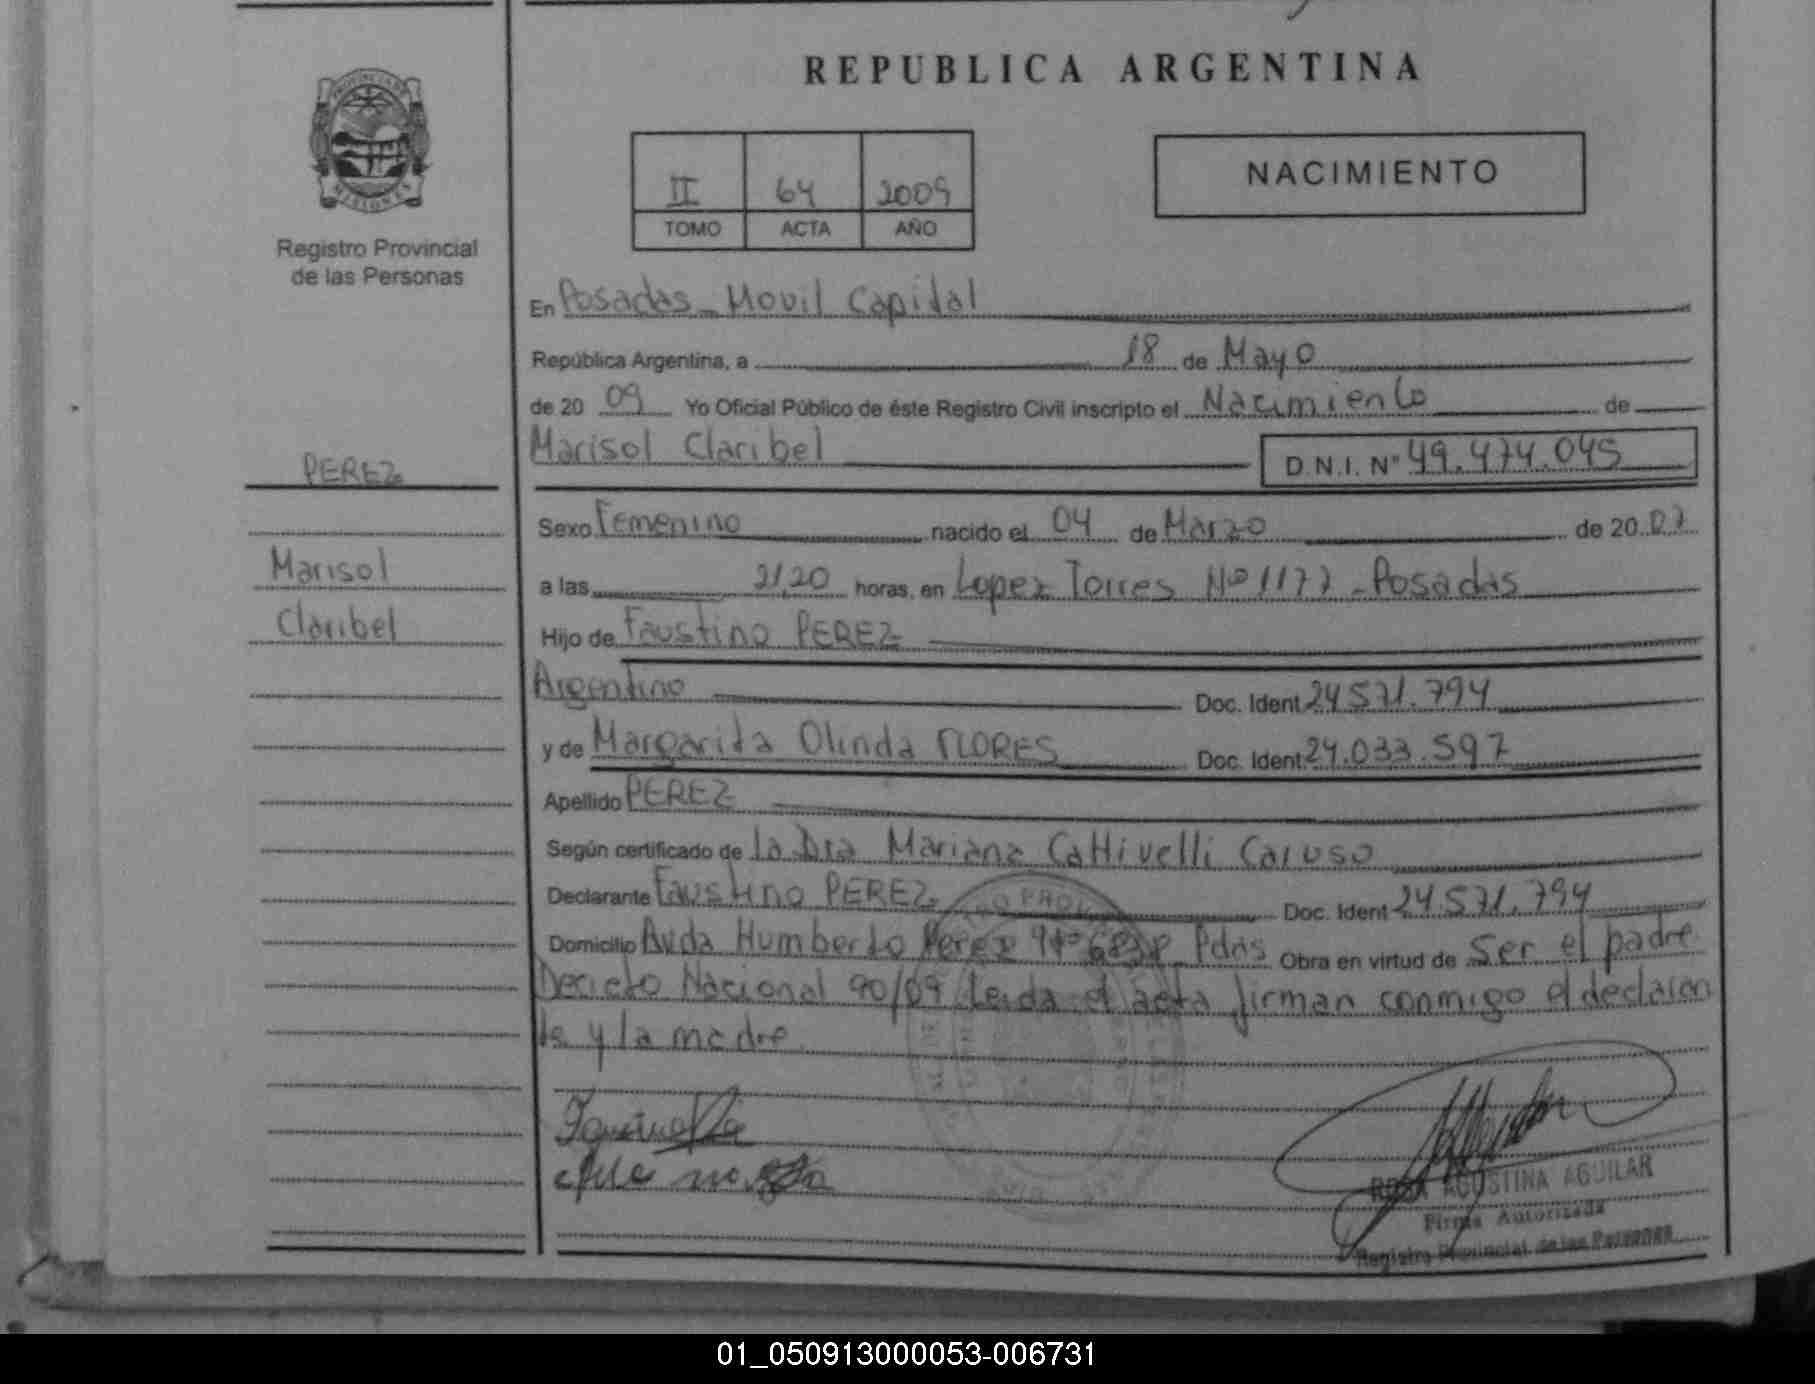 REPUBLICA ARGENTINA
PROVINCIA DE
MISIONES
Registro Provincial
de las Personas
II 64 2009
TOMO ACTA AÑO
NACIMIENTO
En Posadas - Movil Capital
República Argentina, a 18 de Mayo
de 20 09 Yo Oficial Público de éste Registro Civil inscripto el Nacimiento de
Marisol Claribel D.N.I. Nº 49.474.045
PEREZ
Sexo Femenino nacido el 04 de Marzo de 20 07
Marisol
a las 21,20 horas, en Lopez Torres Nº 1177 - Posadas
Claribel
Hijo de Faustino PEREZ
Argentino Doc. Ident 24 571.794
y de Margarita Olinda FLORES Doc. Ident 24.033.597
Apellido PEREZ
Según certificado de la Dra Mariana Cattivelli Caruso
Declarante Faustino PEREZ Doc. Ident 24 571.794
Domicilio Avda Humberto Perez Nº Pdas Obra en virtud de Ser el padre
Decreto Nacional 90/09 Leida el acta firman conmigo el declaran
te y la madre
ROSA AGUSTINA AGUILAR
Firma Autorizada
Registro Provincial de las Personas
01_050913000053-006731